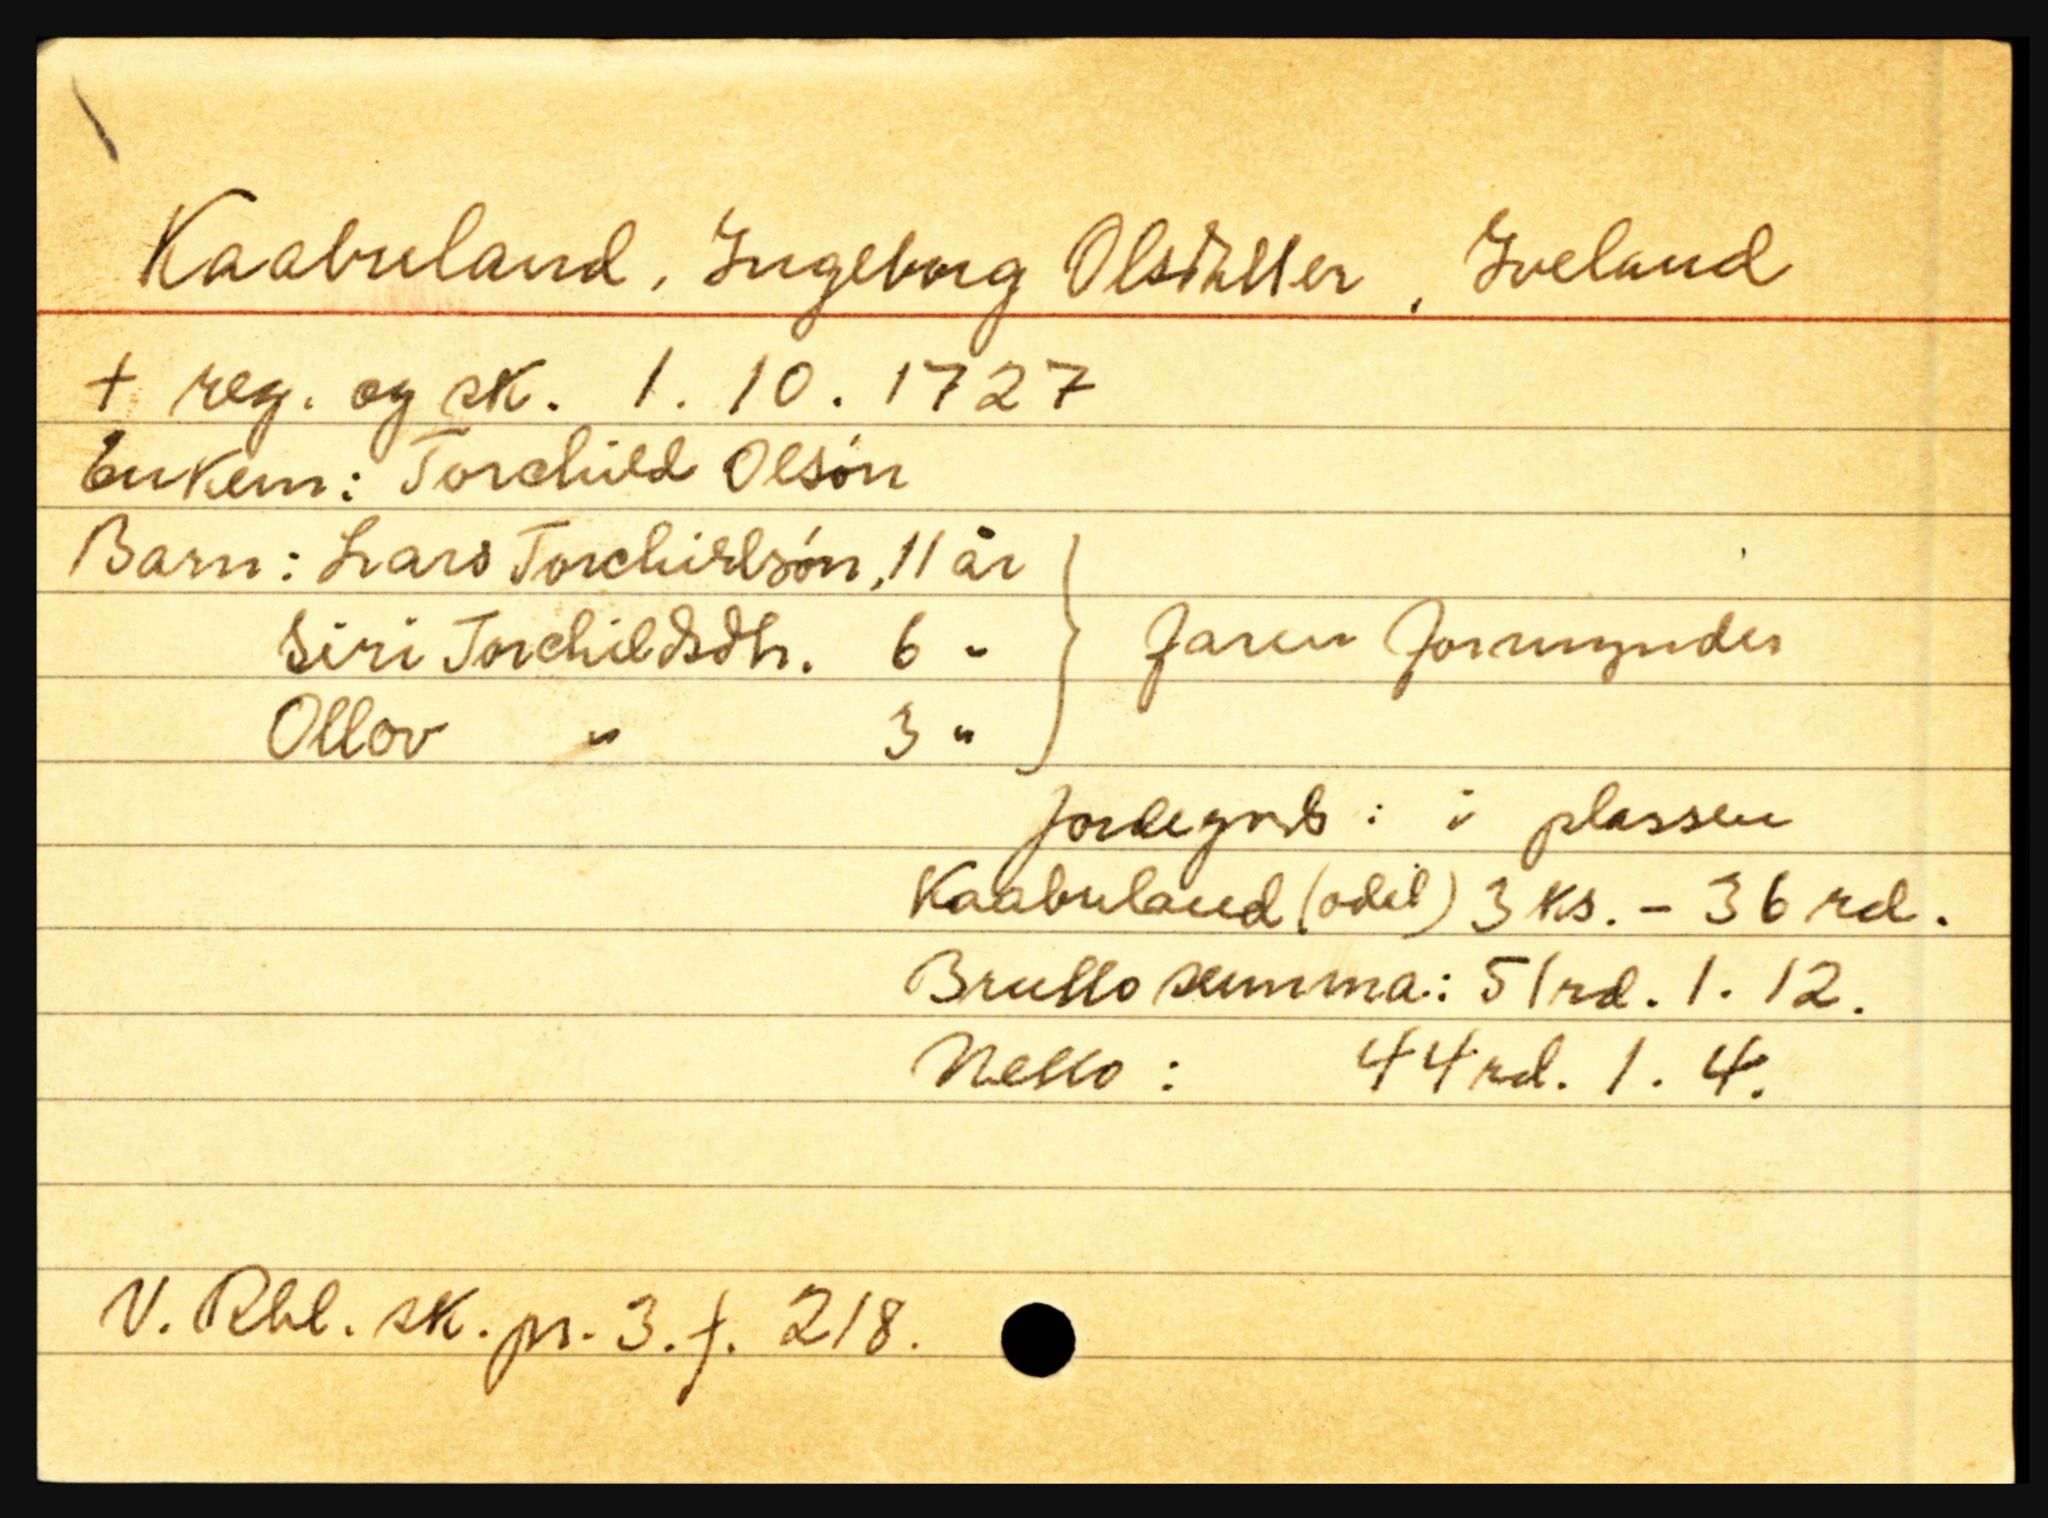 Kaabuland, Ingeborg Olsdatter, Iveland
+ reg. og sk. 1. 10. 1727
Enkem: Torchild Olsøn
Barn: Lars Torchildsøn, 11 år
Siri Torchildsdtr. 6 "
Ollov " 3 "
faren formynder
Jordegods: i plassen
Kaabuland (odel) 3 ks. - 36 rd.
Brutto summa: 51 rd. 1. 12.
Netto: 44 rd. 1. 4.
V. Rbl. sk. pr. 3. f. 218.